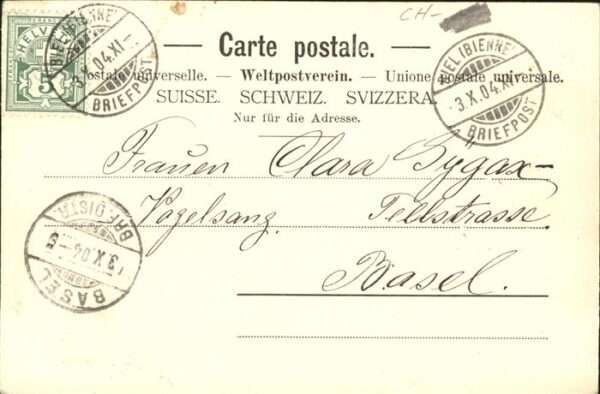 CH-
HELVETIA
5
BIEL (BIENNE)
3.X.04.XI-
BRIEFPOST
BIEL (BIENNE)
3.X.04.XI-
BRIEFPOST
Carte postale.
Postale universelle. — Weltpostverein. — Unione postale universale.
SUISSE. SCHWEIZ. SVIZZERA.
Nur für die Adresse.
Frauen Clara Gygax-
Vogelsang. Tellstrasse.
Basel.
BASEL
3.X.04-5
BRF. DISTR.